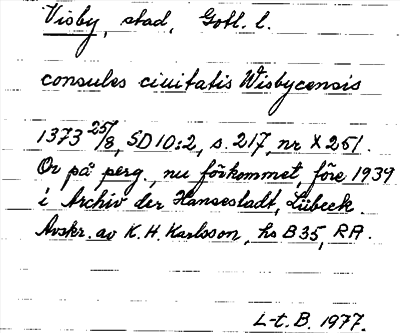 Visby, stad, Gotl. l.
consules ciuitatis Wisbycensis
1373 25/8, SD 10:2, s. 217, nr X 251.
Or på perg., nu förkommet, före 1939
i Archiv der Hansestadt, Lübeck.
Avskr. av K. H. Karlsson, hs B 35, RA.
L-t. B. 1977.